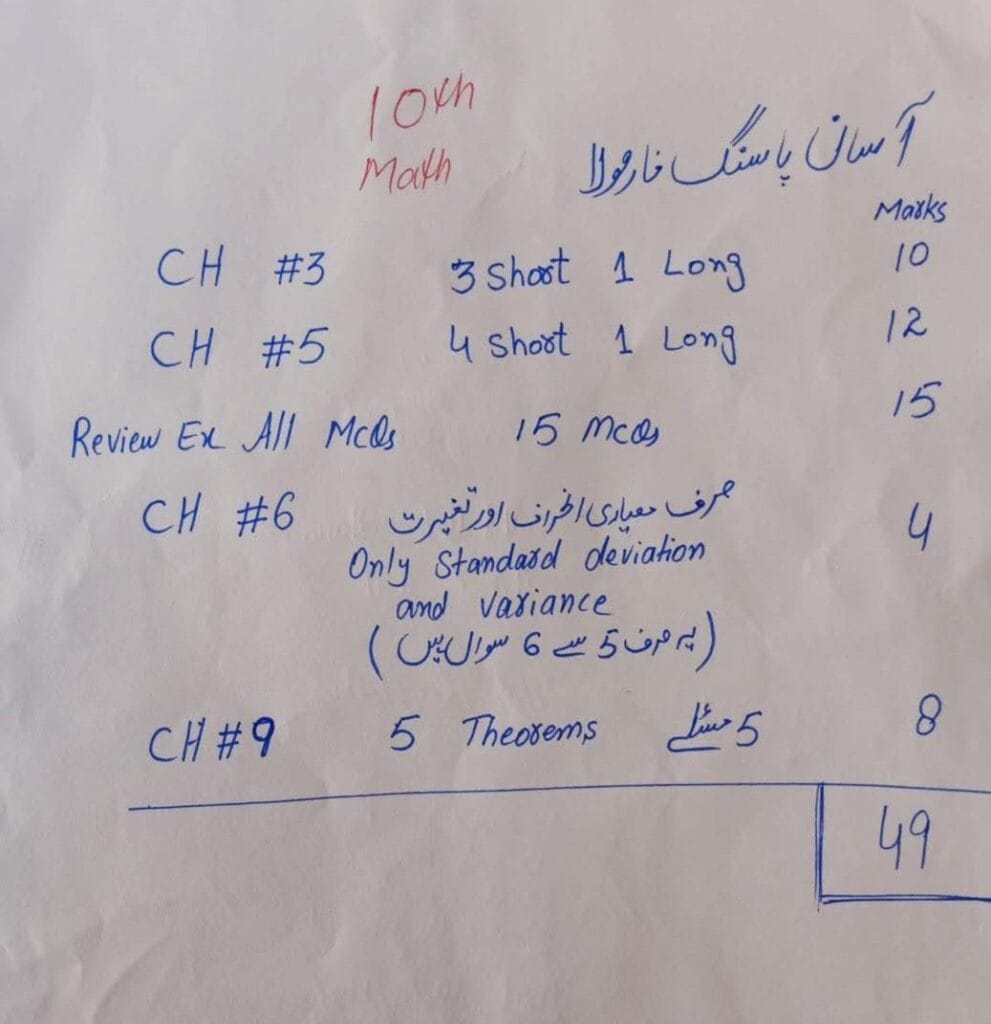 10th
Math
آسان پاسنگ فارمولا
Marks
CH #3 3 Short 1 Long 10
CH #5 4 Short 1 Long 12
Review Ex All McQs 15 McQs 15
CH #6 صرف معیاری انحراف اور تغیرت 4
Only Standard deviation
and variance
(یہ صرف 5 سے 6 سوال ہیں)
CH #9 5 Theorems 5 مسئلے 8
49